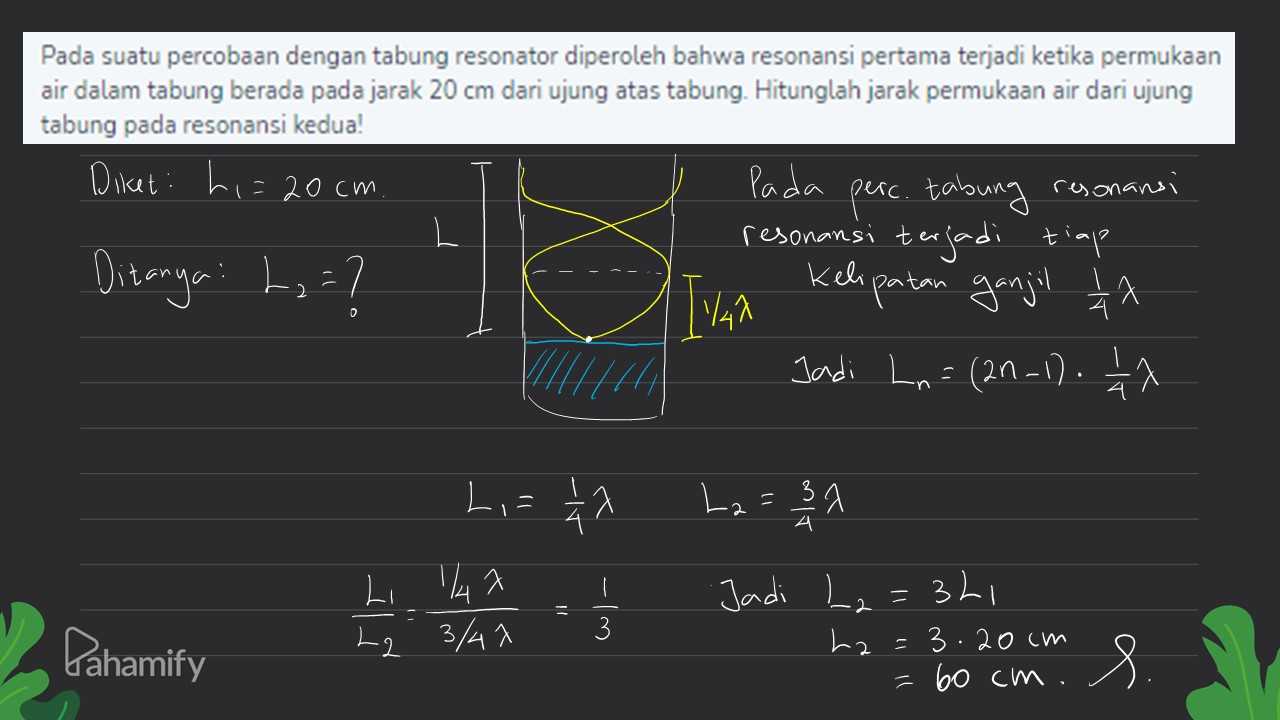 Pada suatu percobaan dengan tabung resonator diperoleh bahwa resonansi pertama terjadi ketika permukaan
air dalam tabung berada pada jarak 20 cm dari ujung atas tabung. Hitunglah jarak permukaan air dari ujung
tabung pada resonansi kedua!
Diket: L₁ = 20 cm.
Ditanya: L₂ = ?
L
1/4 λ
Pada perc. tabung resonansi
resonansi terjadi tiap
kelipatan ganjil 1/4 λ
Jadi Lₙ = (2n-1) . 1/4 λ
L₁ = 1/4 λ L₂ = 3/4 λ
L₁/L₂ = (1/4 λ)/(3/4 λ) = 1/3
Jadi L₂ = 3L₁
L₂ = 3 . 20 cm
= 60 cm.
Pahamify